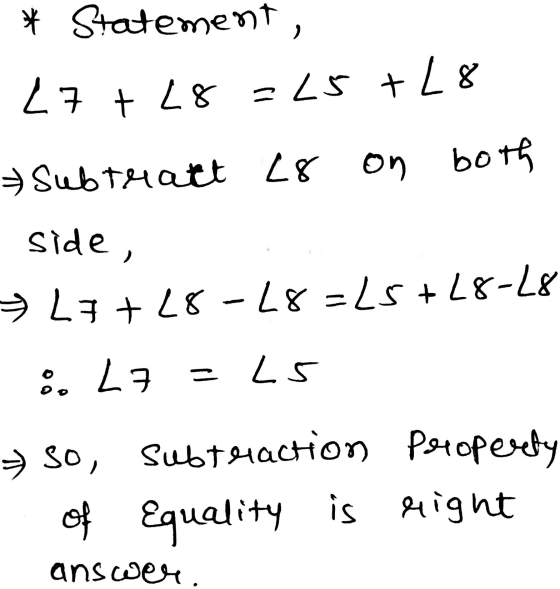 * Statement,
∠7 + ∠8 = ∠5 + ∠8
⇒ Subtract ∠8 on both
side,
⇒ ∠7 + ∠8 - ∠8 = ∠5 + ∠8 - ∠8
∴ ∠7 = ∠5
⇒ So, Subtraction Property
of Equality is right
answer.